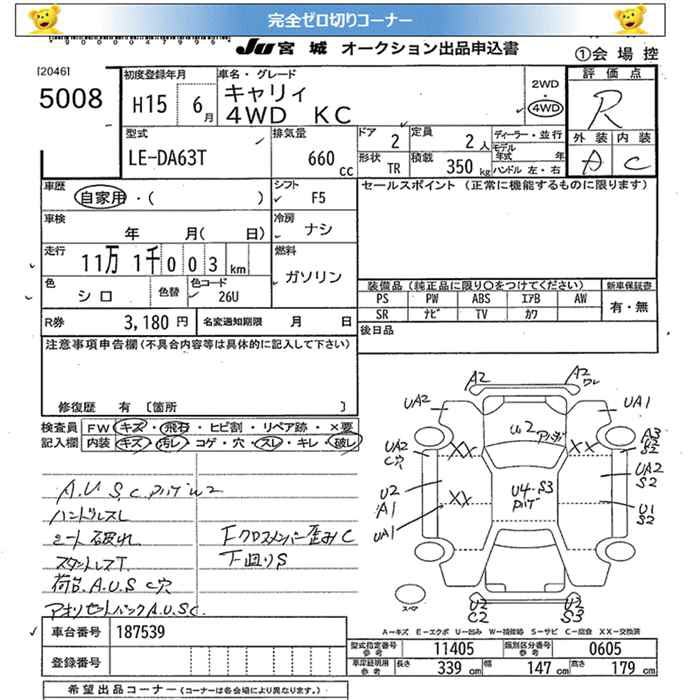 完全ゼロ切りコーナー
JU 宮城 オークション出品申込書
①会場控
[2046]
5008
初度登録年月
H15 6月
車名・グレード
キャリィ
4WD KC
2WD
・
4WD
評価点
R
外装 内装
A C
型式
LE-DA63T
排気量
660 cc
ドア 2
定員 2人
形状 TR
積載 350 kg
ディーラー・並行
モデル年式 年
ハンドル 左・右
車歴
自家用・( )
シフト
F5
セールスポイント (正常に機能するものに限ります)
車検
年 月( 日)
冷房
ナシ
走行
11万 1千 0 0 3 km
燃料
ガソリン
色
シロ
色替
色コード
26U
装備品 (純正品に限り○をつけてください)
新車保証書
PS PW ABS エアB AW
SR ナビ TV カワ
有・無
R券 3,180 円
名変通知期限 月 日
後日品
注意事項申告欄 (不具合内容等は具体的に記入して下さい)
修復歴 有 〔箇所 〕
検査員記入欄
FW キズ・飛石・ヒビ割・リペア跡・×要
内装 キズ・汚れ・コゲ・穴・スレ・キレ・破れ
A.U.S.C.
ハンドルスレ
シート 破れ
荷台.A.U.S C穴
Fクロスメンバー歪みC
下廻りS
A2
A2
UA2
UA1
U2
XX
XX
A3
S2
UA2
C穴
UA2
S2
U2
A1
XX
U4・S3
U1
S2
UA1
スペア
U2
C2
U2
S3
A－キズ E－エクボ U－凹み W－補修跡 S－サビ C－腐食 XX－交換済
車台番号 187539
登録番号
型式指定番号 参考 11405
類別区分番号 参考 0605
車庫証明用 参考 長さ 339 cm 幅 147 cm 高さ 179 cm
希望出品コーナー (コーナーは各会場により異なります。)